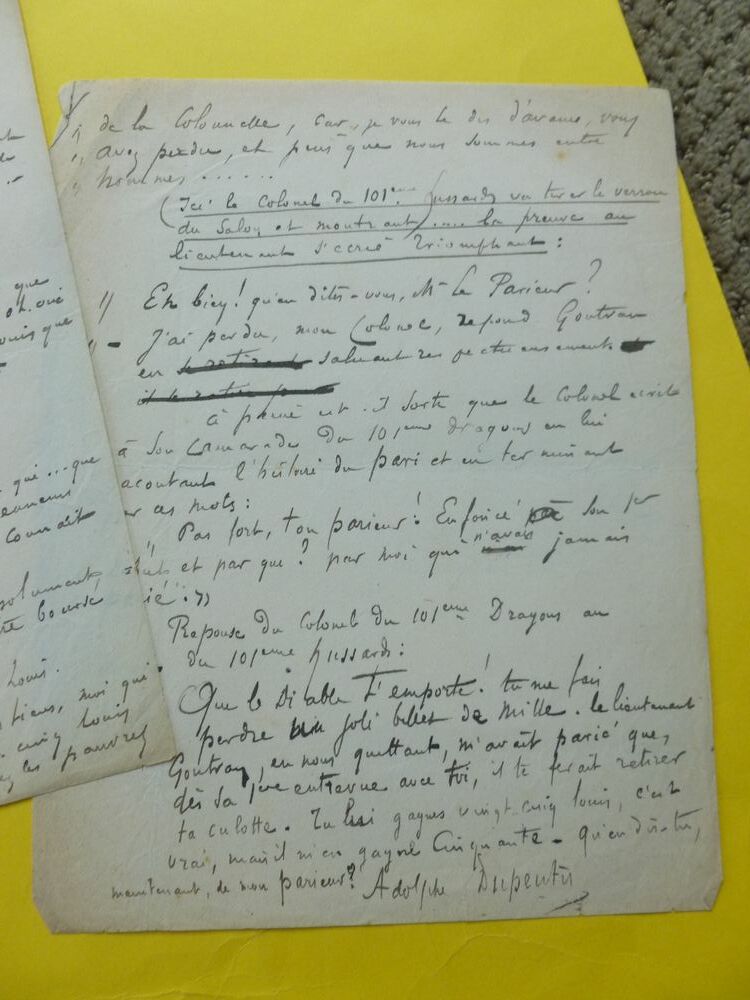 de la Colonelle, car, je vous le dis d'avance, vous
" avez perdu, et puis que nous sommes entre
" hommes......
(Ici le Colonel du 101eme Hussards va tirer le verrou
du Salon et montrant).... la preuve au
lieutenant s'écrie triomphant :
" Eh bien! qu'en dites-vous, Mr Le Parieur ?
" - J'ai perdu, mon Colonel, répond Goutran
en se retirant saluant respectueusement
il se retire
à peine est-il sorti que le Colonel écrit
à son camarade du 101eme dragons en lui
racontant l'histoire du pari et en terminant
par ces mots :
" Pas fort, ton parieur! Enfoncé son 1er
et par que? par moi qui n'avais jamais
parié."
Réponse du Colonel du 101eme Dragons au
du 101eme Hussards :
Que le Diable t'emporte! tu me fais
perdre un joli billet de mille. le lieutenant
Goutran, en nous quittant, m'avait parié que,
dès sa 1ere entrevue avec toi, il te ferait retirer
ta culotte. Tu lui gagnes vingt-cinq louis, c'est
vrai, mais il m'en gagne Cinquante - qu'en dis-tu,
maintenant, de mon parieur? Adolphe Dupeuty
que
oh. oui
louis que
qui...que
connait
absolument,
bourse
Louis.
tiens, moi qui
cinq louis
les pauvres